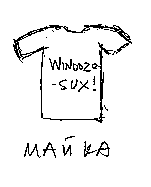 WINDOZE
-SUX!
МАЙКА